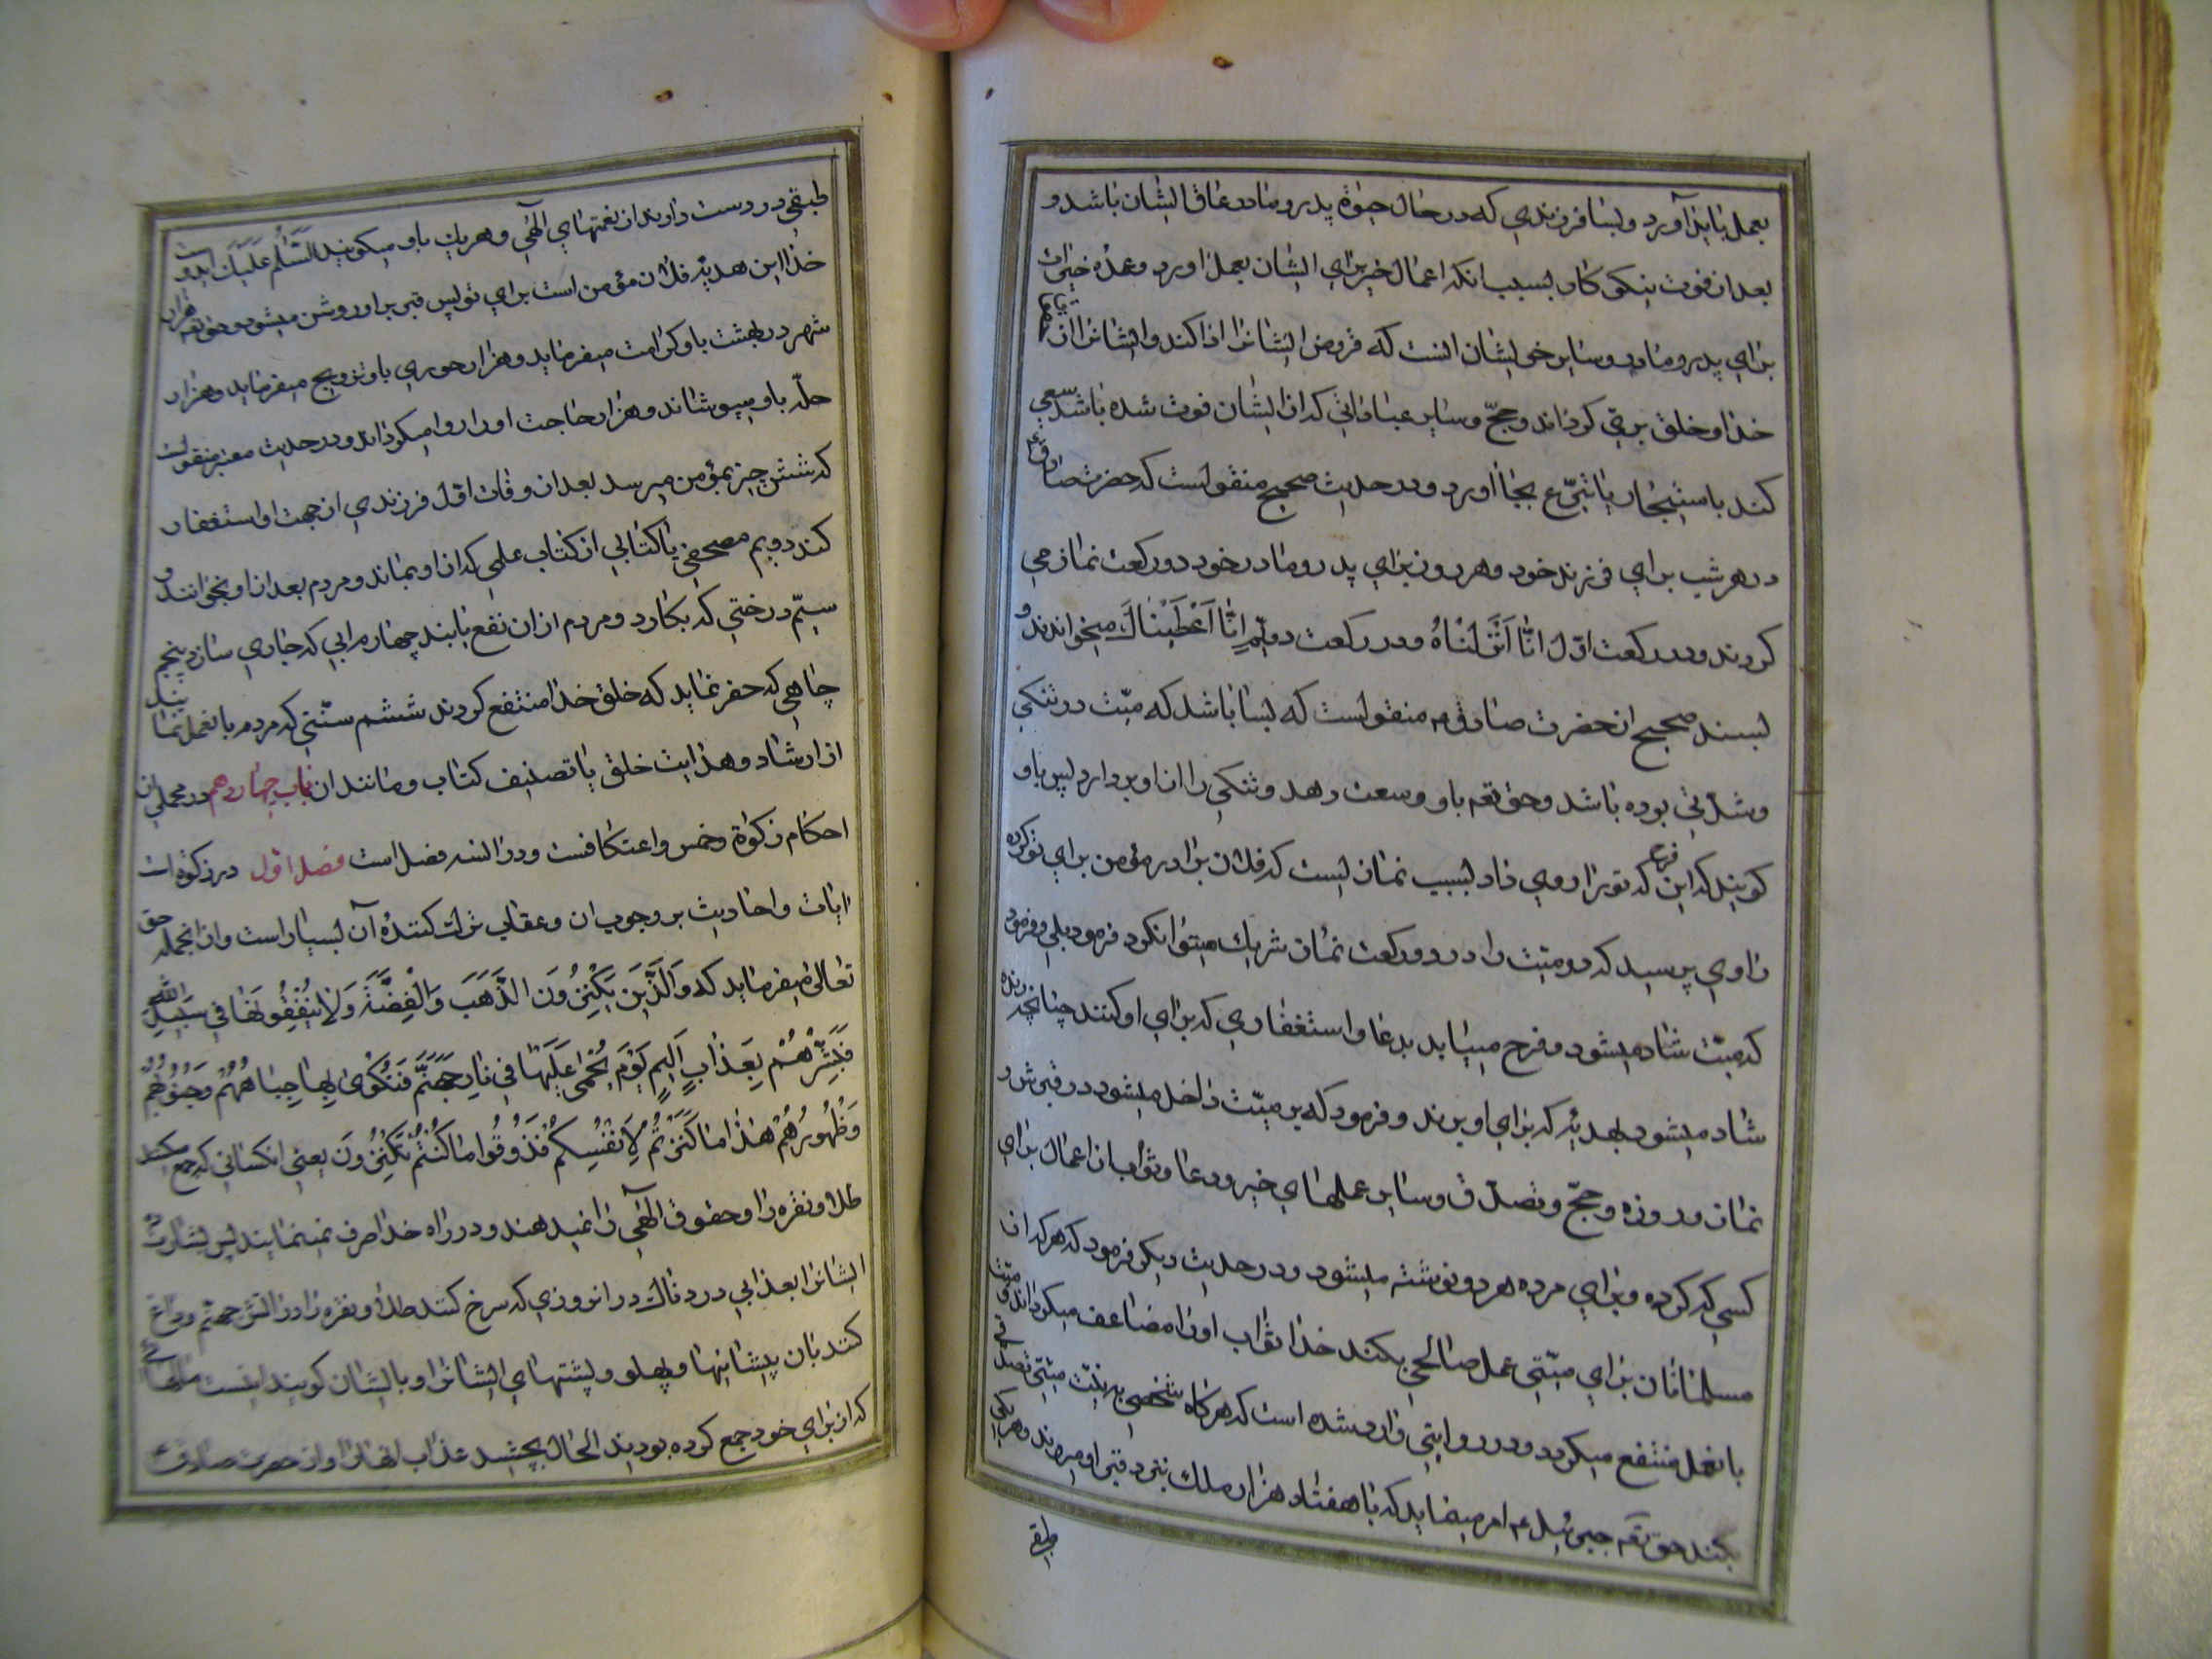 بعمل نایذ آورد و لبسا فرزندی که در حال حیوة پدر و مادر عاق ایشان باشد و
بعد از فوت نیکو کار بسبب انکه اعمال خیر برای ایشان بعمل اورد و عمدۀ خیرات
برای پدر و مادر و سایر خویشان انست که قروض ایشانرا ادا کند و ایشانرا از حقوق
خدا و خلق بری کرداند و حجّ و سایر عباداتی که از ایشان فوت شده باشد سعی
کند باستیجار یا تبرّع بجا آورد و در حدیث صحیح منقولست که حضرت صادق ع
در هر شب برای فرزند خود و هر روز برای پدر و مادر خود دو رکعت نماز می
کردند و در رکعت اوّل انّا انزلناه و در رکعت دویّم اِنّا اَعْطَیْناکَ میخواندند و
بسند صحیح از حضرت صادق م منقولست که بسا باشد که میّت در تنکی
و شدّتی بوده باشد و حق تعم باو وسعت دهد و تنکی را از او بردارد پس باو
کویند که این فرح که تو را روی داد بسبب نمازیست که فلان برادر مؤمن برای تو کرده
راوی پرسید که دو میّت را در دو رکعت نماز شریک میتوانکرد فرمود بلی و فرمود
که میّت شاد میشود و فرح مییابد بدعا و استغفاری که برای او کنند چنانچه زنده
شاد میشود بهدیّه که برای او برند و فرمود که بر میّت داخل میشود در قبرش
نماز و روزه و حجّ و تصدّق و سایر عملهای خیر و دعا و ثواب ان اعمال برای
کسی که کرده و برای مرده هر دو نوشته میشود و در حدیث دیکر فرمود که هر که از
مسلمانان برای میّتی عمل صالحی بکند خدا ثواب او را مضاعف میکرداند و میّت
بانعمل منتفع میکردد و در روایتی وارد شده است که هرکاه شخصی به نیّت میّتی تصدّقی
بکند حق تعم جبرئیل ع م امر میفماید که با هفتاد هزار ملک بنزد قبر او میروند و هر یکی
طبقی
طبقی در دست دارند از نعمتهای الٓهی و هر یک باو میکویند السَّلٰمُ عَلَیْکَ ایدوست
خدا این هدیّه فلان مؤمن است برای تو پس قبر براو روشن میشود و حق تعه هزار
شهر در بهشت باو کرامت میفرماید و هزار حوری باو تزویج میفرماید و هزار
حلّه باو میپوشاند و هزار حاجت او را روا میکرداند و در حدیث معتبر منقولست
که شش چیز بمؤمن میرسد بعد از وفات اوّل فرزندی از جهت او استغفار
کند دویم مصحفی یا کتابی از کتاب علمی که از او بماند و مردم بعد از او بخوانند و
سیّم درختی که بکارد و مردم از ان نفع یابند چهارم ابی که جاری سازد پنجم
چاهی که حفر نماید که خلق خدا منتفع کردند ششم سنّتی که مردم بانعمل نمایند
از ارشاد و هدایت خلق یا تصنیف کتاب و مانند ان باب چهاردهم در مجملی از
احکام زکوة و خمس و اعتکافست و در ان سه فصل است فصل اوّل در زکوة است
ایات و احادیث بر وجوب ان و عقاب ترک کنندۀ آن بسیار است و از انجمله حق
تعالی میفرماید که وَالَّذینَ یَکْنِزُونَ الذَّهَبَ وَالْفِضَّةَ وَلا یُنْفِقُونَها فی سَبیلِ اللهِ
فَبَشِّرْهُمْ بِعَذابٍ اَلیمٍ یَوْمَ یُحْمی عَلَیْها فی نارِ جَهَنَّمَ فَتُکْوی بِها جِباهُهُمْ وَجُنُوبُهُمْ
وَظُهُورُهُمْ هذا ما کَنَزْتُمْ لِاَنْفُسِکُمْ فَذُوقُوا ما کُنْتُمْ تَکْنِزُونَ یعنی انکسانی که جمع میکنند
طلا و نقره را و حقوق الٓهی را نمیدهند و در راه خدا صرف نمینمایند پس بشارت ده
ایشانرا بعذابی دردناک در انروزی که سرخ کنند طلا و نقره را در اتش جهنّم و داغ
کنند بان پیشانیها و پهلو و پشتهای ایشانرا و بایشان کویند اینست مالهائی
که از برای خود جمع کرده بودید الحال بچشید عذاب انها را و از حضرت صادق ع